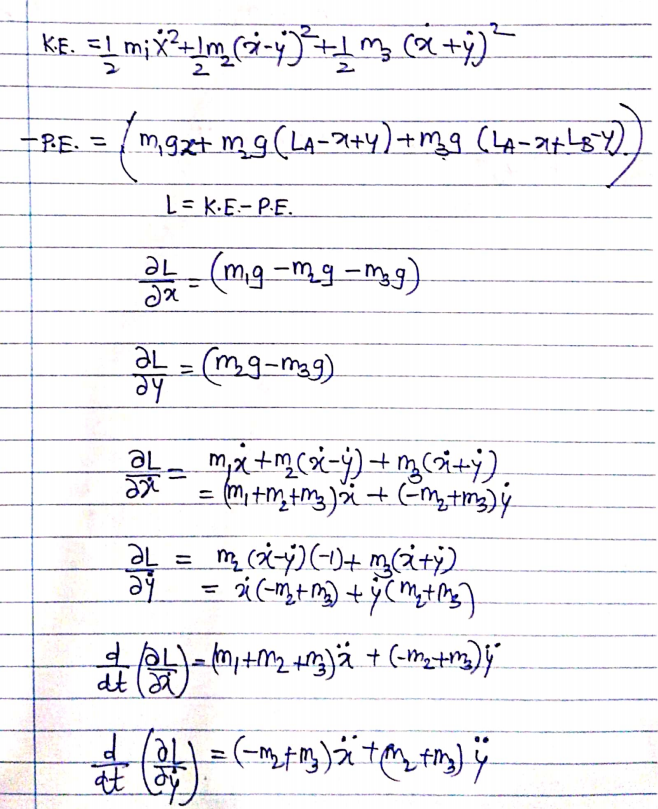 K.E. = 1/2 m₁ẋ² + 1/2 m₂(ẋ-ẏ)² + 1/2 m₃ (ẋ+ẏ)²
-P.E. = (m₁gx + m₂g(L_A-x+y) + m₃g (L_A-x+L_B-y))
L = K.E.-P.E.
∂L/∂x = (m₁g - m₂g - m₃g)
∂L/∂y = (m₂g - m₃g)
∂L/∂ẋ = m₁ẋ + m₂(ẋ-ẏ) + m₃(ẋ+ẏ)
= (m₁+m₂+m₃)ẋ + (-m₂+m₃)ẏ
∂L/∂ẏ = m₂(ẋ-ẏ)(-1) + m₃(ẋ+ẏ)
= ẋ(-m₂+m₃) + ẏ(m₂+m₃)
d/dt (∂L/∂ẋ) = (m₁+m₂+m₃)ẍ + (-m₂+m₃)ÿ
d/dt (∂L/∂ẏ) = (-m₂+m₃)ẍ + (m₂+m₃)ÿ